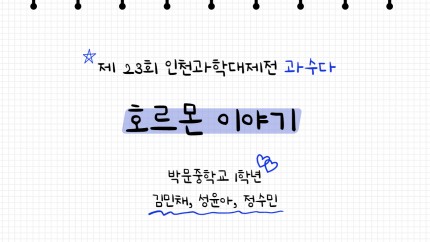 제 23회 인천과학대제전 과수다
호르몬 이야기
박문중학교 1학년
김민채, 성윤아, 정수민